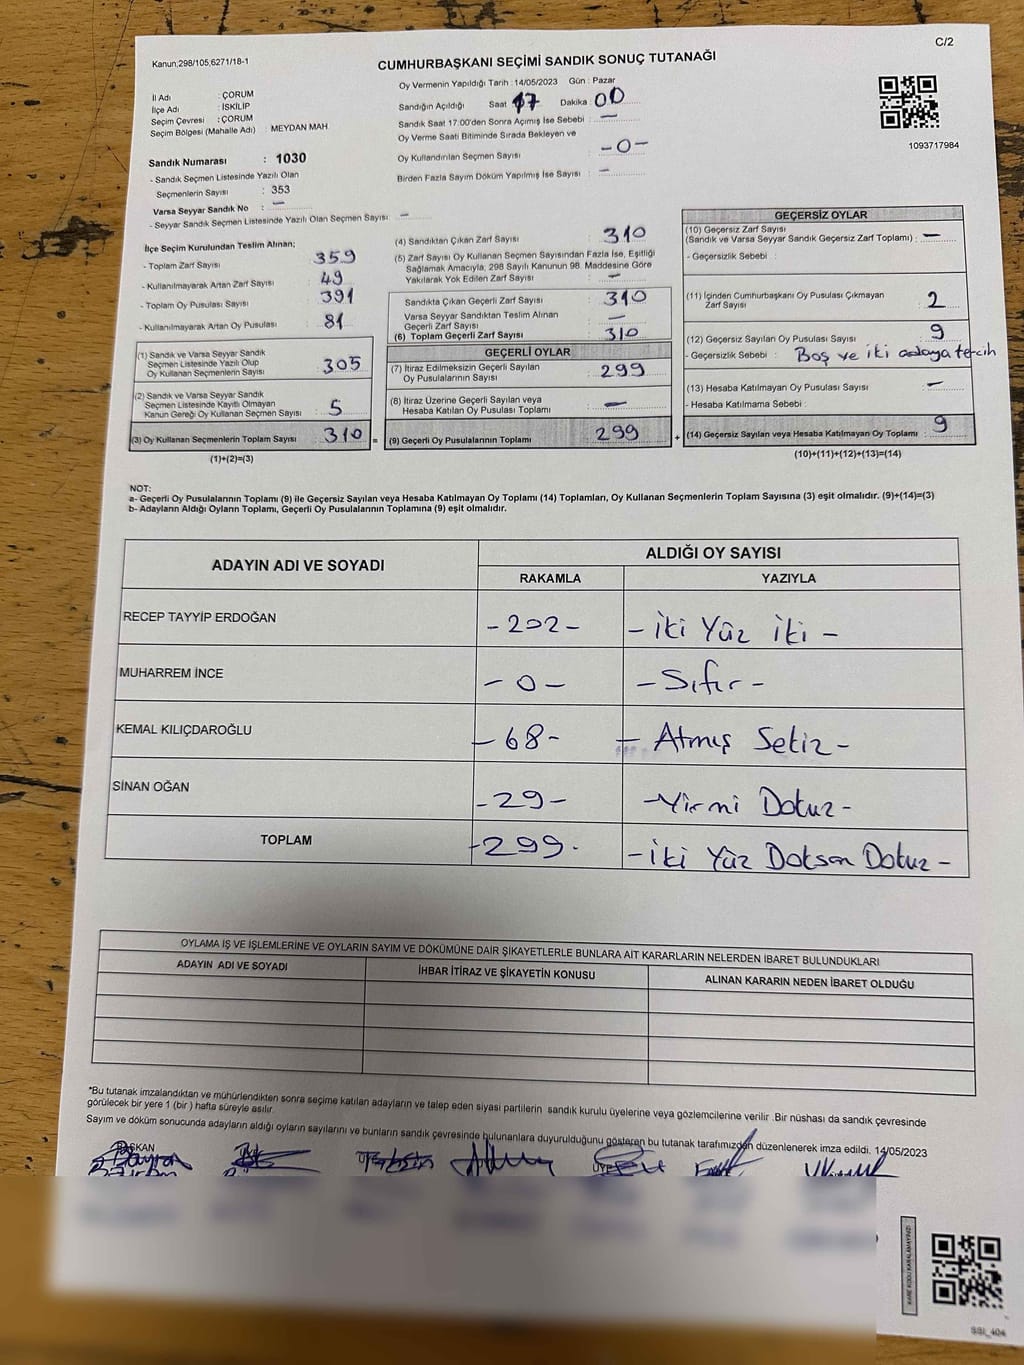 C/2
Kanun;298/105,6271/18-1
CUMHURBAŞKANI SEÇİMİ SANDIK SONUÇ TUTANAĞI
İl Adı : ÇORUM
İlçe Adı : İSKİLİP
Seçim Çevresi : ÇORUM
Seçim Bölgesi (Mahalle Adı) : MEYDAN MAH
Sandık Numarası : 1030
- Sandık Seçmen Listesinde Yazılı Olan
Seçmenlerin Sayısı : 353
Varsa Seyyar Sandık No : —
- Seyyar Sandık Seçmen Listesinde Yazılı Olan Seçmen Sayısı: —
Oy Vermenin Yapıldığı Tarih : 14/05/2023 Gün : Pazar
Sandığın Açıldığı Saat 17 Dakika 00
Sandık Saat 17:00'den Sonra Açımış İse Sebebi : —
Oy Verme Saati Bitiminde Sırada Bekleyen ve
Oy Kullandırılan Seçmen Sayısı : -0-
Birden Fazla Sayım Döküm Yapılmış İse Sayısı : —
1093717984
İlçe Seçim Kurulundan Teslim Alınan;
- Toplam Zarf Sayısı : 359
- Kullanılmayarak Artan Zarf Sayısı : 49
- Toplam Oy Pusulası Sayısı : 391
- Kullanılmayarak Artan Oy Pusulası : 81
(1) Sandık ve Varsa Seyyar Sandık
Seçmen Listesinde Yazılı Olup
Oy Kullanan Seçmenlerin Sayısı : 305
(2) Sandık ve Varsa Seyyar Sandık
Seçmen Listesinde Kayıtlı Olmayan
Kanun Gereği Oy Kullanan Seçmen Sayısı : 5
(3) Oy Kullanan Seçmenlerin Toplam Sayısı : 310 =
(1)+(2)=(3)
(4) Sandıktan Çıkan Zarf Sayısı : 310
(5) Zarf Sayısı Oy Kullanan Seçmen Sayısından Fazla İse, Eşitliği
Sağlamak Amacıyla, 298 Sayılı Kanunun 98. Maddesine Göre
Yakılarak Yok Edilen Zarf Sayısı : —
Sandıkta Çıkan Geçerli Zarf Sayısı : 310
Varsa Seyyar Sandıktan Teslim Alınan
Geçerli Zarf Sayısı : —
(6) Toplam Geçerli Zarf Sayısı : 310
GEÇERLİ OYLAR
(7) İtiraz Edilmeksizin Geçerli Sayılan
Oy Pusulalarının Sayısı : 299
(8) İtiraz Üzerine Geçerli Sayılan veya
Hesaba Katılan Oy Pusulası Toplamı : —
(9) Geçerli Oy Pusulalarının Toplamı : 299 +
GEÇERSİZ OYLAR
(10) Geçersiz Zarf Sayısı
(Sandık ve Varsa Seyyar Sandık Geçersiz Zarf Toplamı) : —
- Geçersizlik Sebebi :
(11) İçinden Cumhurbaşkanı Oy Pusulası Çıkmayan
Zarf Sayısı : 2
(12) Geçersiz Sayılan Oy Pusulası Sayısı : 9
- Geçersizlik Sebebi : Boş ve iki adaya tercih
(13) Hesaba Katılmayan Oy Pusulası Sayısı : —
- Hesaba Katılmama Sebebi :
(14) Geçersiz Sayılan veya Hesaba Katılmayan Oy Toplamı : 9
(10)+(11)+(12)+(13)=(14)
NOT:
a- Geçerli Oy Pusulalarının Toplamı (9) ile Geçersiz Sayılan veya Hesaba Katılmayan Oy Toplamı (14) Toplamları, Oy Kullanan Seçmenlerin Toplam Sayısına (3) eşit olmalıdır. (9)+(14)=(3)
b- Adayların Aldığı Oyların Toplamı, Geçerli Oy Pusulalarının Toplamına (9) eşit olmalıdır.
ADAYIN ADI VE SOYADI
ALDIĞI OY SAYISI
RAKAMLA YAZIYLA
RECEP TAYYİP ERDOĞAN -202- - iki Yüz iki -
MUHARREM İNCE - 0 - - Sıfır -
KEMAL KILIÇDAROĞLU - 68 - - Atmış Sekiz -
SİNAN OĞAN - 29 - - Yirmi Dokuz -
TOPLAM - 299 - - iki Yüz Doksan Dokuz -
OYLAMA İŞ VE İŞLEMLERİNE VE OYLARIN SAYIM VE DÖKÜMÜNE DAİR ŞİKAYETLERLE BUNLARA AİT KARARLARIN NELERDEN İBARET BULUNDUKLARI
ADAYIN ADI VE SOYADI İHBAR İTİRAZ VE ŞİKAYETİN KONUSU ALINAN KARARIN NEDEN İBARET OLDUĞU
*Bu tutanak imzalandıktan ve mühürlendikten sonra seçime katılan adayların ve talep eden siyasi partilerin sandık kurulu üyelerine veya gözlemcilerine verilir .Bir nüshası da sandık çevresinde
görülecek bir yere 1 (bir ) hafta süreyle asılır.
Sayım ve döküm sonucunda adayların aldığı oyların sayılarını ve bunların sandık çevresinde bulunanlara duyurulduğunu gösteren bu tutanak tarafımızdan düzenlenerek imza edildi. 14/05/2023
BAŞKAN
KARE KODU KARALAMAYINIZ!
SSI_404